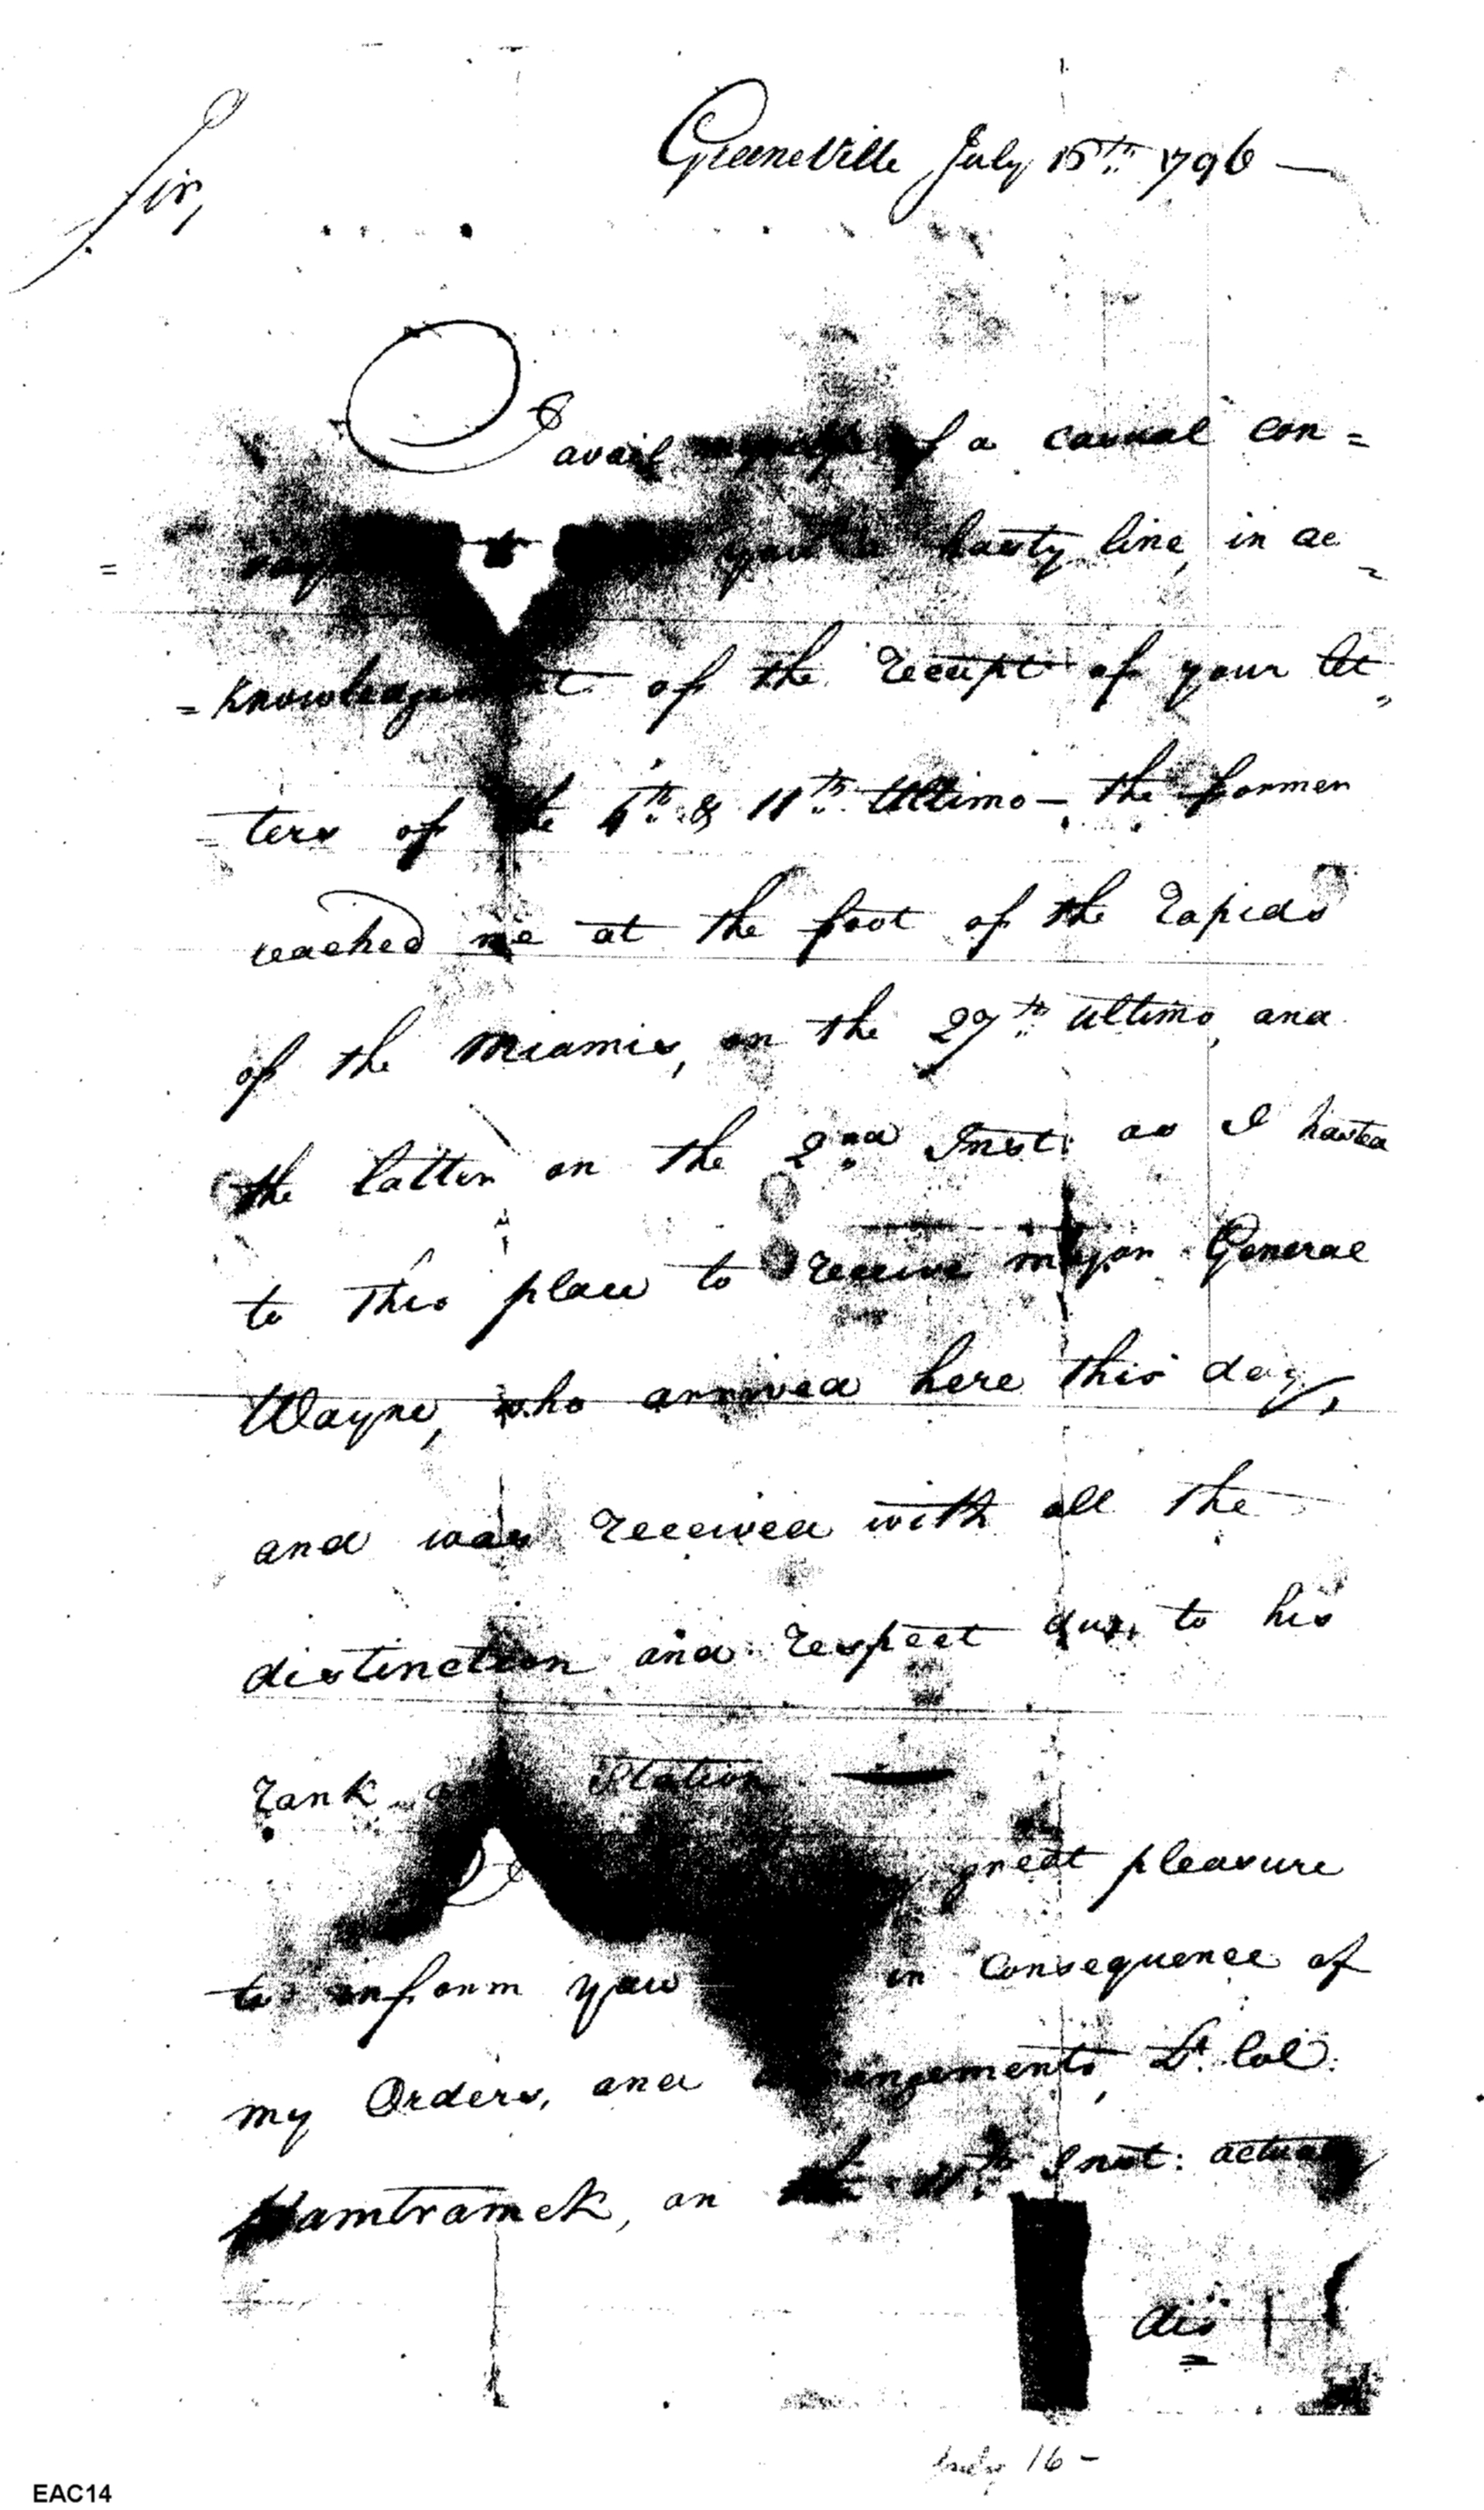 Greeneville July 16th 1796 —
Sir,
I avail myself of a casual con=
=vey to you a hasty line, in ac=
=knowledgement of the receipt of your let=
=ters of the 4th & 11th Ultimo — the former
reached me at the foot of the rapids
of the Miamis, on the 27th ultimo, and
the latter on the 2nd Inst: as I hasted
to this place to receive Major General
Wayne, who arrived here this day,
and was received with all the
distinction and respect due, to his
rank and Station —
I great pleasure
to inform you in Consequence of
my Orders, and arrangements, Lt. Col:
Hamtramck, on the Inst: actually
dis
July 16 -
EAC14